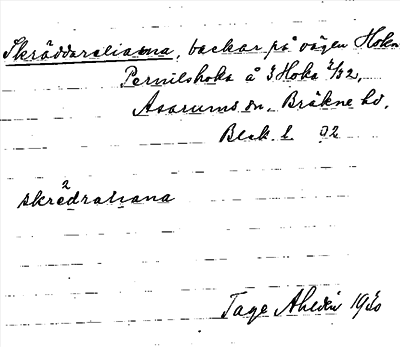 Skräddaraliana, backar på vägen Hoka
Pernilshoka å 3 Hoka 3/32,
Asarums sn. Bräkne hd.
Blek. l 92
skrädraliana
Tage Ahldén 1930